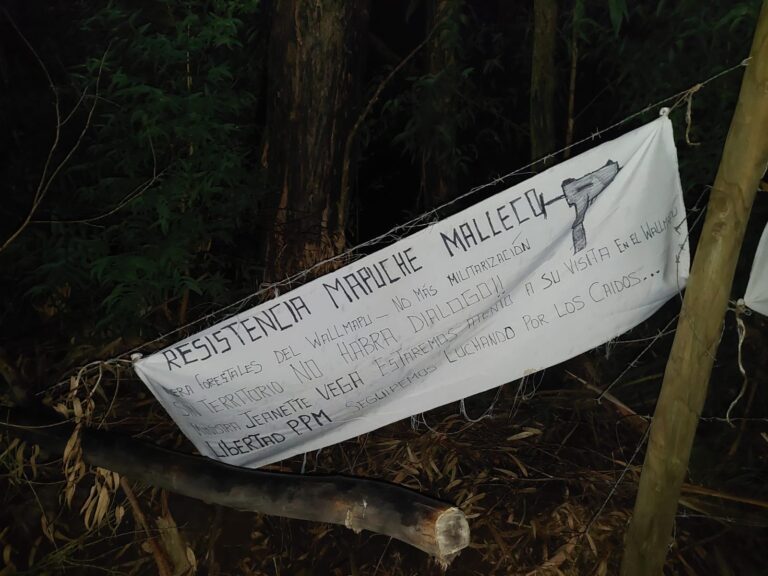 RESISTENCIA MAPUCHE MALLECO
FUERA FORESTALES DEL WALLMAPU - NO MÁS MILITARIZACIÓN
SIN TERRITORIO NO HABRA DIALOGO!!
MINISTRA JEANETTE VEGA ESTAREMOS ATENTO A SU VISITA EN EL WALLMAPU
LIBERTAD PPM SEGUIREMOS LUCHANDO POR LOS CAIDOS...